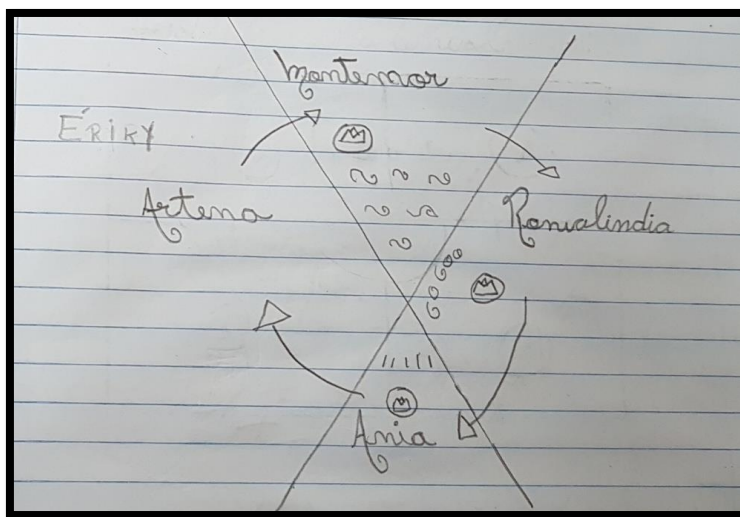 Montemor
ÉRIKY
Artena
Ronialindia
Ania